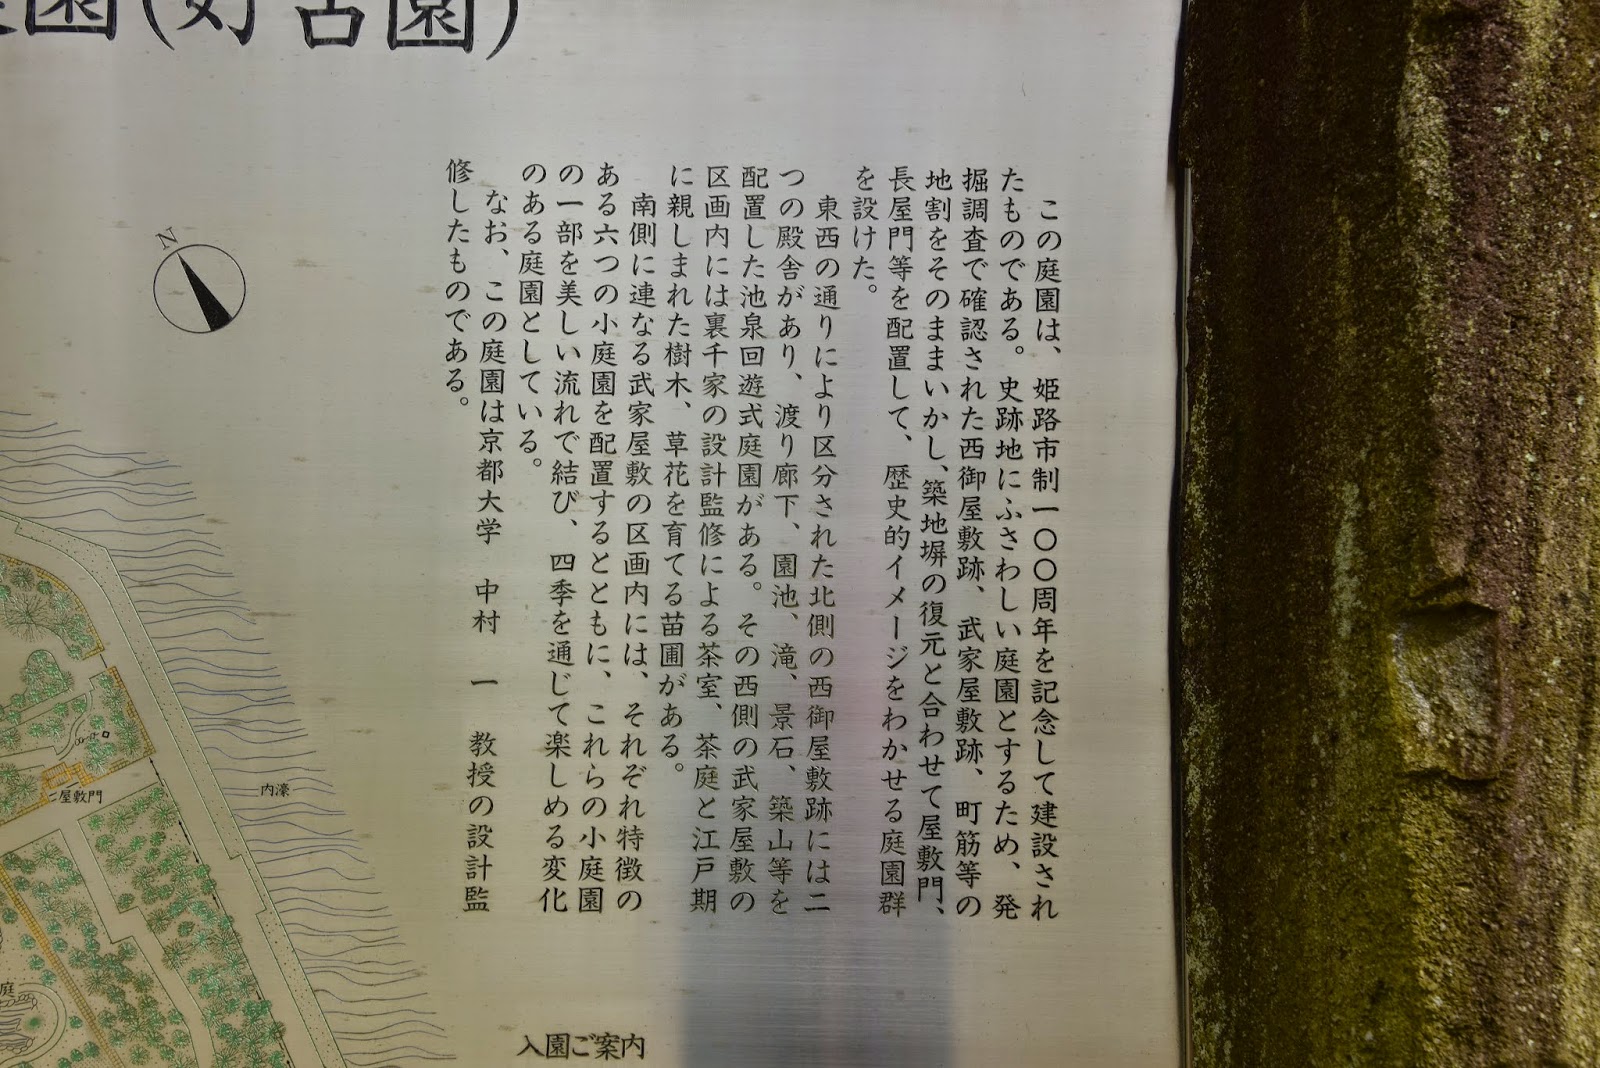 園(好古園)
この庭園は、姫路市制一〇〇周年を記念して建設され
たものである。史跡地にふさわしい庭園とするため、発
掘調査で確認された西御屋敷跡、武家屋敷跡、町筋等の
地割をそのままいかし、築地塀の復元と合わせて屋敷門、
長屋門等を配置して、歴史的イメージをわかせる庭園群
を設けた。
東西の通りにより区分された北側の西御屋敷跡には二
つの殿舎があり、渡り廊下、園池、滝、景石、築山等を
配置した池泉回遊式庭園がある。その西側の武家屋敷の
区画内には裏千家の設計監修による茶室、茶庭と江戸期
に親しまれた樹木、草花を育てる苗圃がある。
南側に連なる武家屋敷の区画内には、それぞれ特徴の
ある六つの小庭園を配置するとともに、これらの小庭園
の一部を美しい流れで結び、四季を通じて楽しめる変化
のある庭園としている。
なお、この庭園は京都大学 中村 一 教授の設計監
修したものである。
N
内濠
屋敷門
庭
入園ご案内